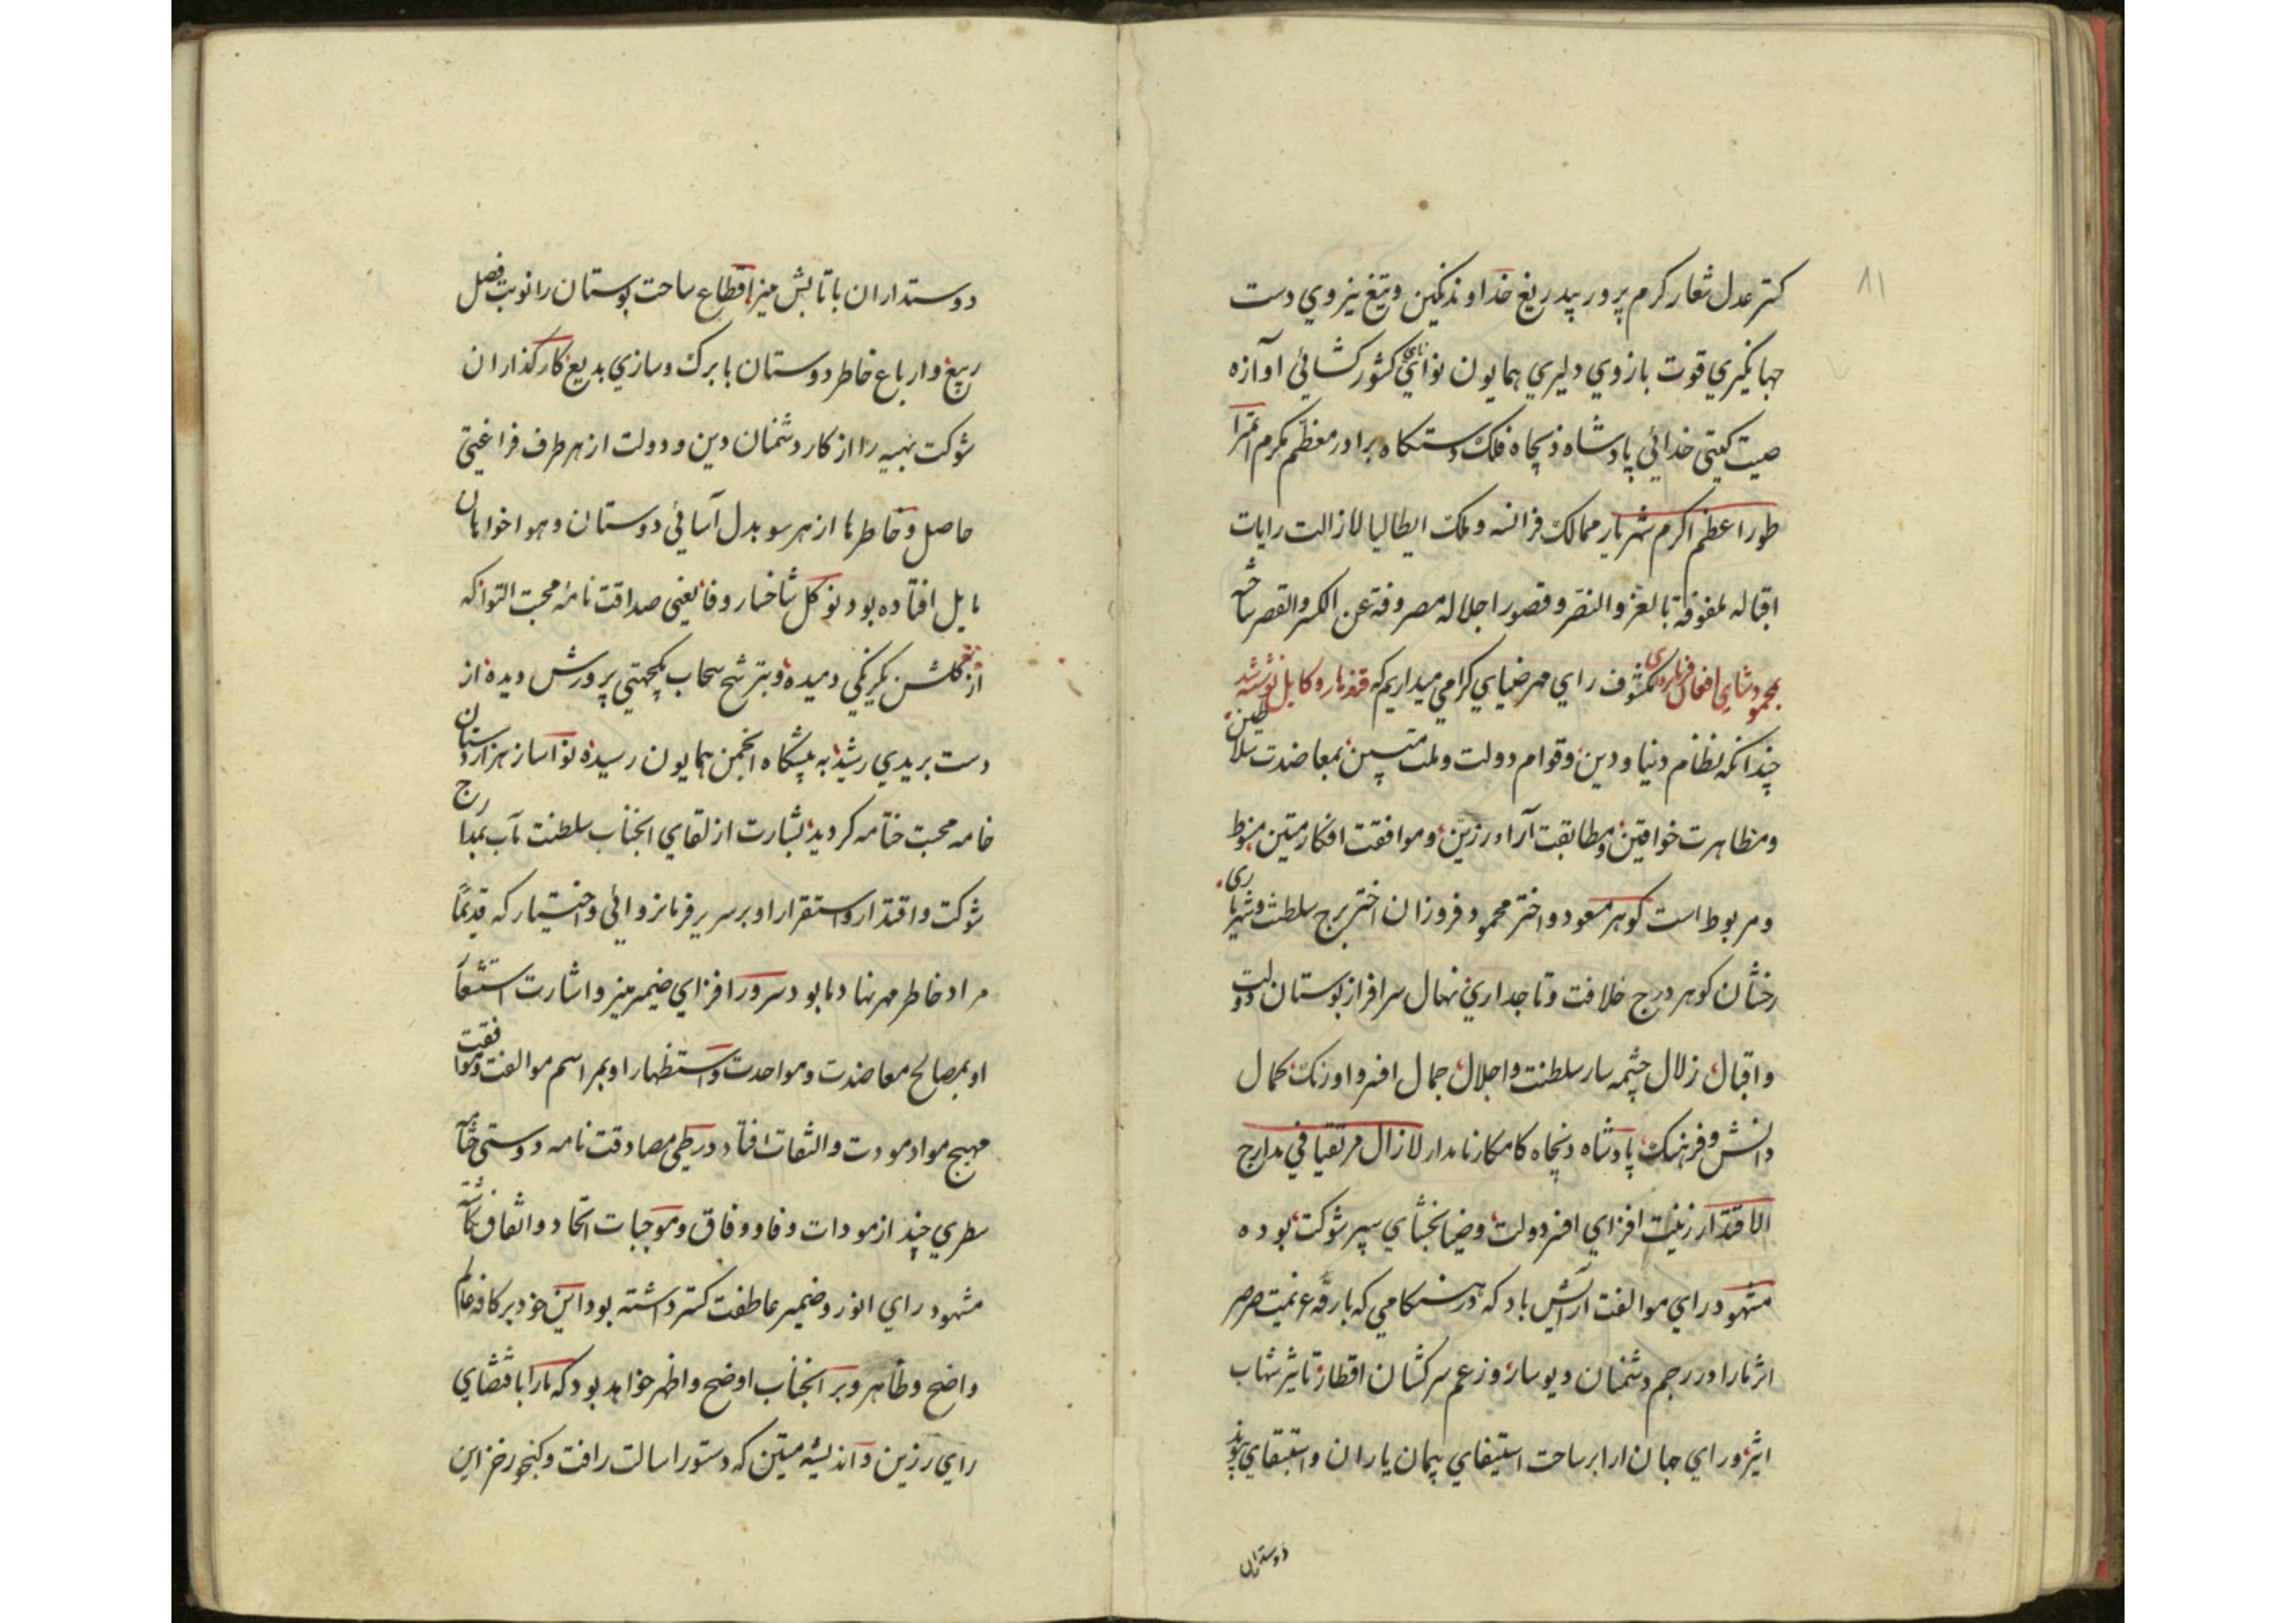 ۸۱
کستر عدل شعار کرم پرور بیدریغ خداوند نکین و تیغ نیزوی دست
جهانکیری قوت بازوی دلیری همایون نوای نای کشورکشائی آوازه
صیت کیتی خدائی پادشاه ذیجاه فلک دستکاه برادر معظم مکرم امپرا
طور اعظم اکرم شهریار ممالک فرانسه و ملک ایطالیا لازالت رایات
اقباله ملفوفة بالعز والنصر و قصور اجلاله مصروفة عن الکسر والقصر ساخته
بمحمود شاه افغان مکشوف رای مهر ضیای کرامی میداریم که قندهار و کابل نوشته شد
چندانکه نظام دنیا و دین و قوام دولت و ملت متین بمعاضدت سلاطین
و مظاهرت خواقین و مطابقت آراء رزین و موافقت افکار متین منوط
و مربوط است کوهر مسعود و اختر محمود فروزان اختر برج سلطنت و شهریاری
رخشان کوهر درج خلافت و تاجداری نهال سرافراز بوستان دولت
و اقبال زلال چشمه سار سلطنت و اجلال جمال افسر و اورنک کمال
دانش و فرهنک پادشاه ذیجاه کامکار نامدار لازال مرتقیا فی مدارج
الاقتدار زینت افزای افسر دولت و ضیابخشای سپهر شوکت بوده
مشهود رای موالفت آرایش باد که در هنکامی که بارقه عزیمت صرصر
اثر ما را در رجم دشمنان دیوسار و زعم سرکشان اقطار تاثیر شهاب
اثیر و رای جهان ارا بر ساحت استیفای پیمان یاران و استبقای پیوند
دوستداران
دوستداران با تابش میزا قطاع ساحت بوستان را نوبت فصل
ربیع و ارباع خاطر دوستان با برک و سازی بدیع کارکذاران
شوکت بهیه را از کار دشمنان دین و دولت از هر طرف فراغتی
حاصل و خاطر ما از هر سو بدل آسائی دوستان و هواخواهان
مایل افتاده بود نوکل شاخسار وفا یعنی صداقت نامه محبت التوا که
از کلشن یکرنکی دمیده و بترشح سحاب یکجهتی پرورش دیده از
دست بریدی رشید به پیشکاه انجمن همایون رسیده نواساز هزاردستان
خامه محبت ختامه کردید بشارت از لقای انجناب سلطنت مآب بمدارج
شوکت و اقتدار و استقرار او بر سریر فرمانروائی و اختیار که قدیماً
مراد خاطر مهر نهاد ما بود سرور افزای ضمیر منیر و اشارت استشعار
او بمصالح معاضدت و مواحدت و استظهار او بمراسم موالفت و موافقت
مهیج مواد مودت و التفات افتاد در طی مصادقت نامه دوستی ختامه
سطری چند از مودات وفا و وفاق و موجبات اتحاد و اتفاق نکاشته
مشهود رای انور و ضمیر عاطفت کستر داشته بود این خود بر کافه عالم
واضح و ظاهر و بر انجناب اوضح و اظهر خواهد بود که ما را باقتضای
رای رزین و اندیشه متین که دستور ایالت رافت و کنجور خزاین